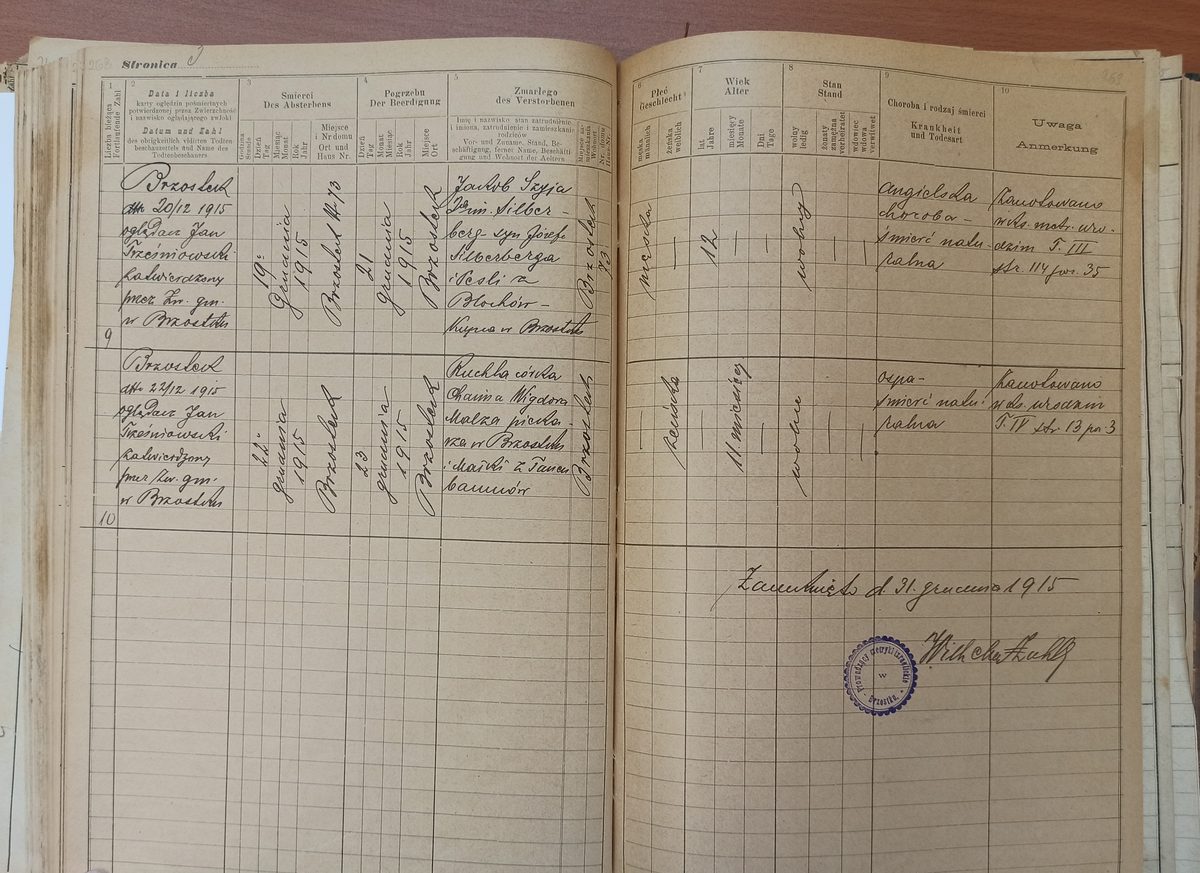 Stronica 3
1
Liczba bieżąca
Fortlaufende Zahl
2
Data i liczba
karty oględzin pośmiertnych
potwierdzonej przez Zwierzchność
i nazwisko oglądającego zwłoki
Datum und Zahl
des obrigkeitlich vidirten Todten-
beschauzettels und Name des
Todtenbeschauers
3
Śmierci
Des Absterbens
Godzina
Stunde
Dzień
Tag
Miesiąc
Monat
Rok
Jahr
Miejsce
i Nr domu
Ort und
Haus Nr.
4
Pogrzebu
Der Beerdigung
Dzień
Tag
Miesiąc
Monat
Rok
Jahr
Miejsce
Ort
5
Zmarłego
des Verstorbenen
Imię i nazwisko, stan zatrudnienie
i imiona, zatrudnienie i zamieszkanie
rodziców
Vor- und Zuname, Stand, Be-
schäftigung, ferner Name, Beschäfti-
gung und Wohnort der Aeltern
6
Płeć
Geschlecht
męska
männlich
żeńska
weiblich
7
Wiek
Alter
lat
Jahre
miesięcy
Monate
Dni
Tage
8
Stan
Stand
wolny
ledig
żonaty
zamężna
verheiratet
wdowiec
wdowa
verwitwet
9
Choroba i rodzaj śmierci
Krankheit
und Todesart
10
Uwaga
Anmerkung
9
Brzostek
dtto 20/12 1915
oglądacz Jan
Trześniowski
zatwierdzony
przez Zw. gm.
w Brzostku
19
Grudnia
1915
Brzostek № 73
21
grudnia
1915
Brzostek
Jakób Szyja
2im. Silber-
berg syn Józefa
Silberberga
i Pesli z
Blochów-
Kupca w Brzostku
Brzostek
73
męska
12
wolny
angielska
choroba -
śmierć natu-
ralna
Zanotowano
w ks. metr. uro-
dzin T. III
str. 114 poz. 35
10
Brzostek
dtto 22/12 1915
oglądacz Jan
Trześniowski
zatwierdzony
przez Zw. gm.
w Brzostku
22
grudnia
1915
Brzostek
23
grudnia
1915
Brzostek
Ruchla córka
Chaima Wigdora
Malza pieka-
rza w Brzostku
i Maski z Tanen
baumów
Brzostek
żeńska
11 miesięcy
wolne
ospa-
śmierć natu-
ralna
Zanotowano
w ks. urodzin
T. IV str. 13 poz. 3
Zamknięto d. 31. grudnia 1915
Prowadzący metryki izraelickie
w
Brzostku.